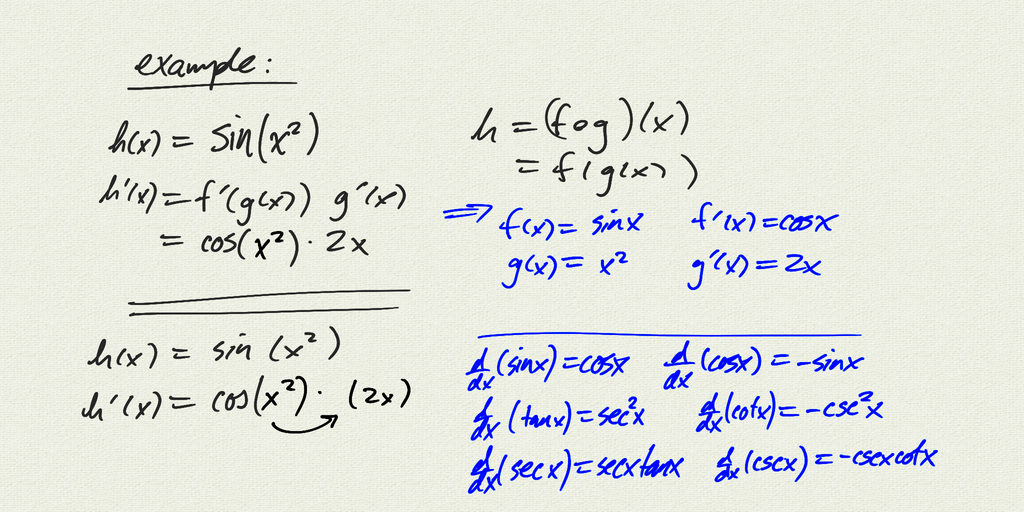 example:
h(x) = sin(x²)
h'(x) = f'(g(x)) g'(x)
= cos(x²) · 2x
h(x) = sin (x²)
h'(x) = cos(x²) · (2x)
h = (f∘g)(x)
= f(g(x))
⇒ f(x) = sinx f'(x) = cosx
g(x) = x² g'(x) = 2x
d/dx (sinx) = cosx d/dx (cosx) = -sinx
d/dx (tanx) = sec²x d/dx (cotx) = -csc²x
d/dx (secx) = secxtanx d/dx (cscx) = -cscxcotx